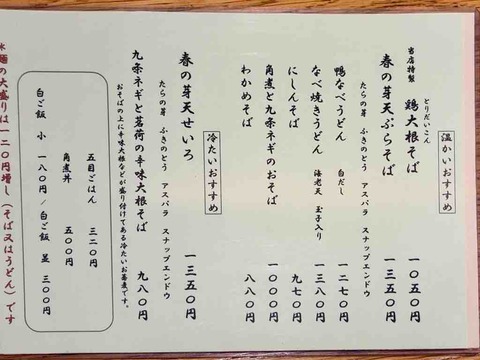 温かいおすすめ
とりだいこん
当店特製 鶏大根そば 一〇五〇円
春の芽天ぷらそば 一三五〇円
たらの芽 ふきのとう アスパラ スナップエンドウ
鴨なべうどん 白だし 一二七〇円
なべ焼きうどん 海老天 玉子入り 一三八〇円
にしんそば 九七〇円
角煮と九条ネギのおそば 一〇〇〇円
わかめそば 八八〇円
冷たいおすすめ
春の芽天せいろ 一三五〇円
たらの芽 ふきのとう アスパラ スナップエンドウ
九条ネギと茗荷の辛味大根そば 九八〇円
おそばの上に辛味大根などが盛り付けてある冷たいお蕎麦です。
五目ごはん 三二〇円
角煮丼 五〇〇円
白ご飯 小 一八〇円/白ご飯 並 三〇〇円
※麺の大盛りは一二〇円増し(そば又はうどん)です